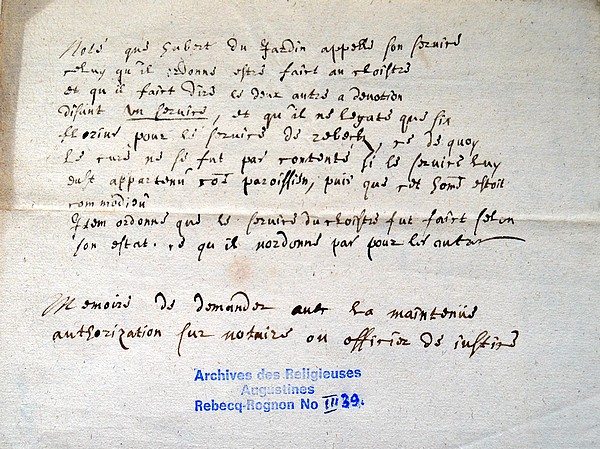 Note que hubert du Jardin appelle son service
celuy qu'il ordonne estre faict au cloistre
et qu'il faict dire le deux autre a devotion
disant un service, et qu'il ne legate que six
florins pour le service de rebecq, ce de quoy
le curé ne se fut pas contenté si le service luy
eust appartenu coe paroissien, puis que cet home estoit
commodieu
Item ordonne que le service du cloistre fut faict selon
son estat. ce qu il nordonne pas pour les autres
Memoire de demander avec la maintenue
authorization sur notaire ou officier de justice
Archives des Religieuses
Augustines
Rebecq-Rognon No III 39.